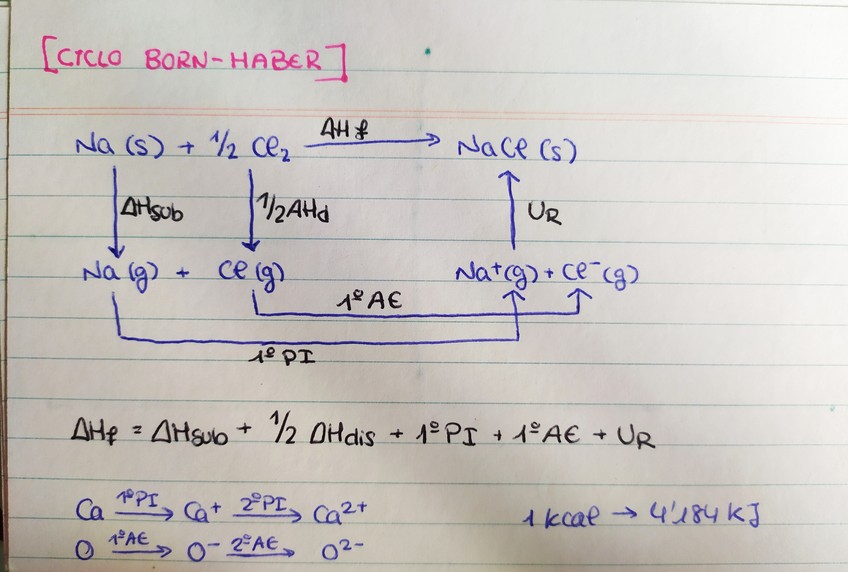 [CICLO BORN-HABER]
Na (s) + 1/2 Cl₂ ΔHf NaCl (s)
ΔHsub 1/2 ΔHd UR
Na (g) + Cl (g) Na⁺(g) + Cl⁻(g)
1º AE
1º PI
ΔHf = ΔHsub + 1/2 ΔHdis + 1º PI + 1º AE + UR
Ca 1ºPI → Ca⁺ 2ºPI → Ca²⁺ 1 kcal → 4'184 KJ
O 1ºAE → O⁻ 2ºAE → O²⁻